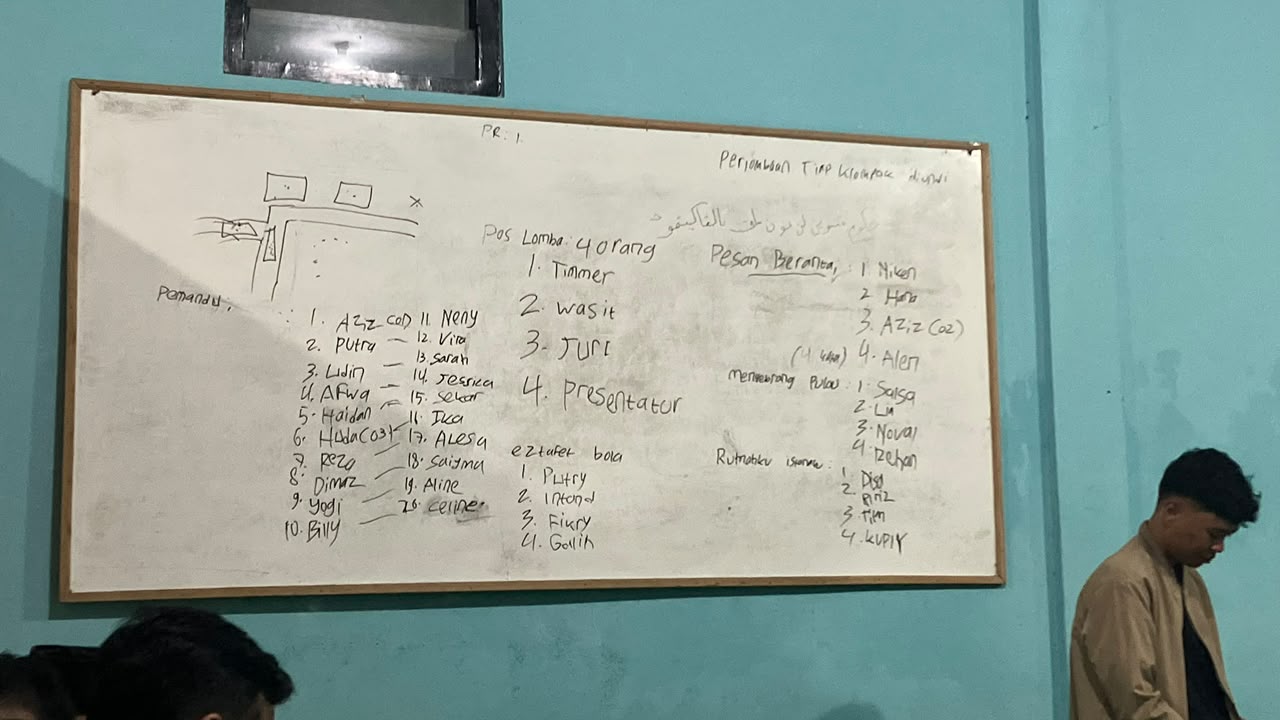 PR: 1.
Perlombaan Tiap Klompok diuwi
Pos Lomba: 4 orang
1. Timmer
2. wasit
3. Juri
4. Presentator
Pemandu:
1. Aziz (01)
2. Putra
3. Udin
4. Afwa
5. Haidan
6. Huda (03)
7. Reza
8. Dimaz
9. Yogi
10. Billy
11. Neny
12. Vira
13. Sarah
14. Jessica
15. Sekar
16. Ika
17. Alesa
18. Saiyma
19. Aline
20. Celine
eztafet bola
1. Putry
2. Intand
3. Fikry
4. Galih
Pesan Beranta, :
1 Niken
2 Hana
3. Aziz (02)
4. Alen
Pulau :
1. Salsa
2. Lia
3. Noval
4. Rehan
1. Disa
2.
3
4.